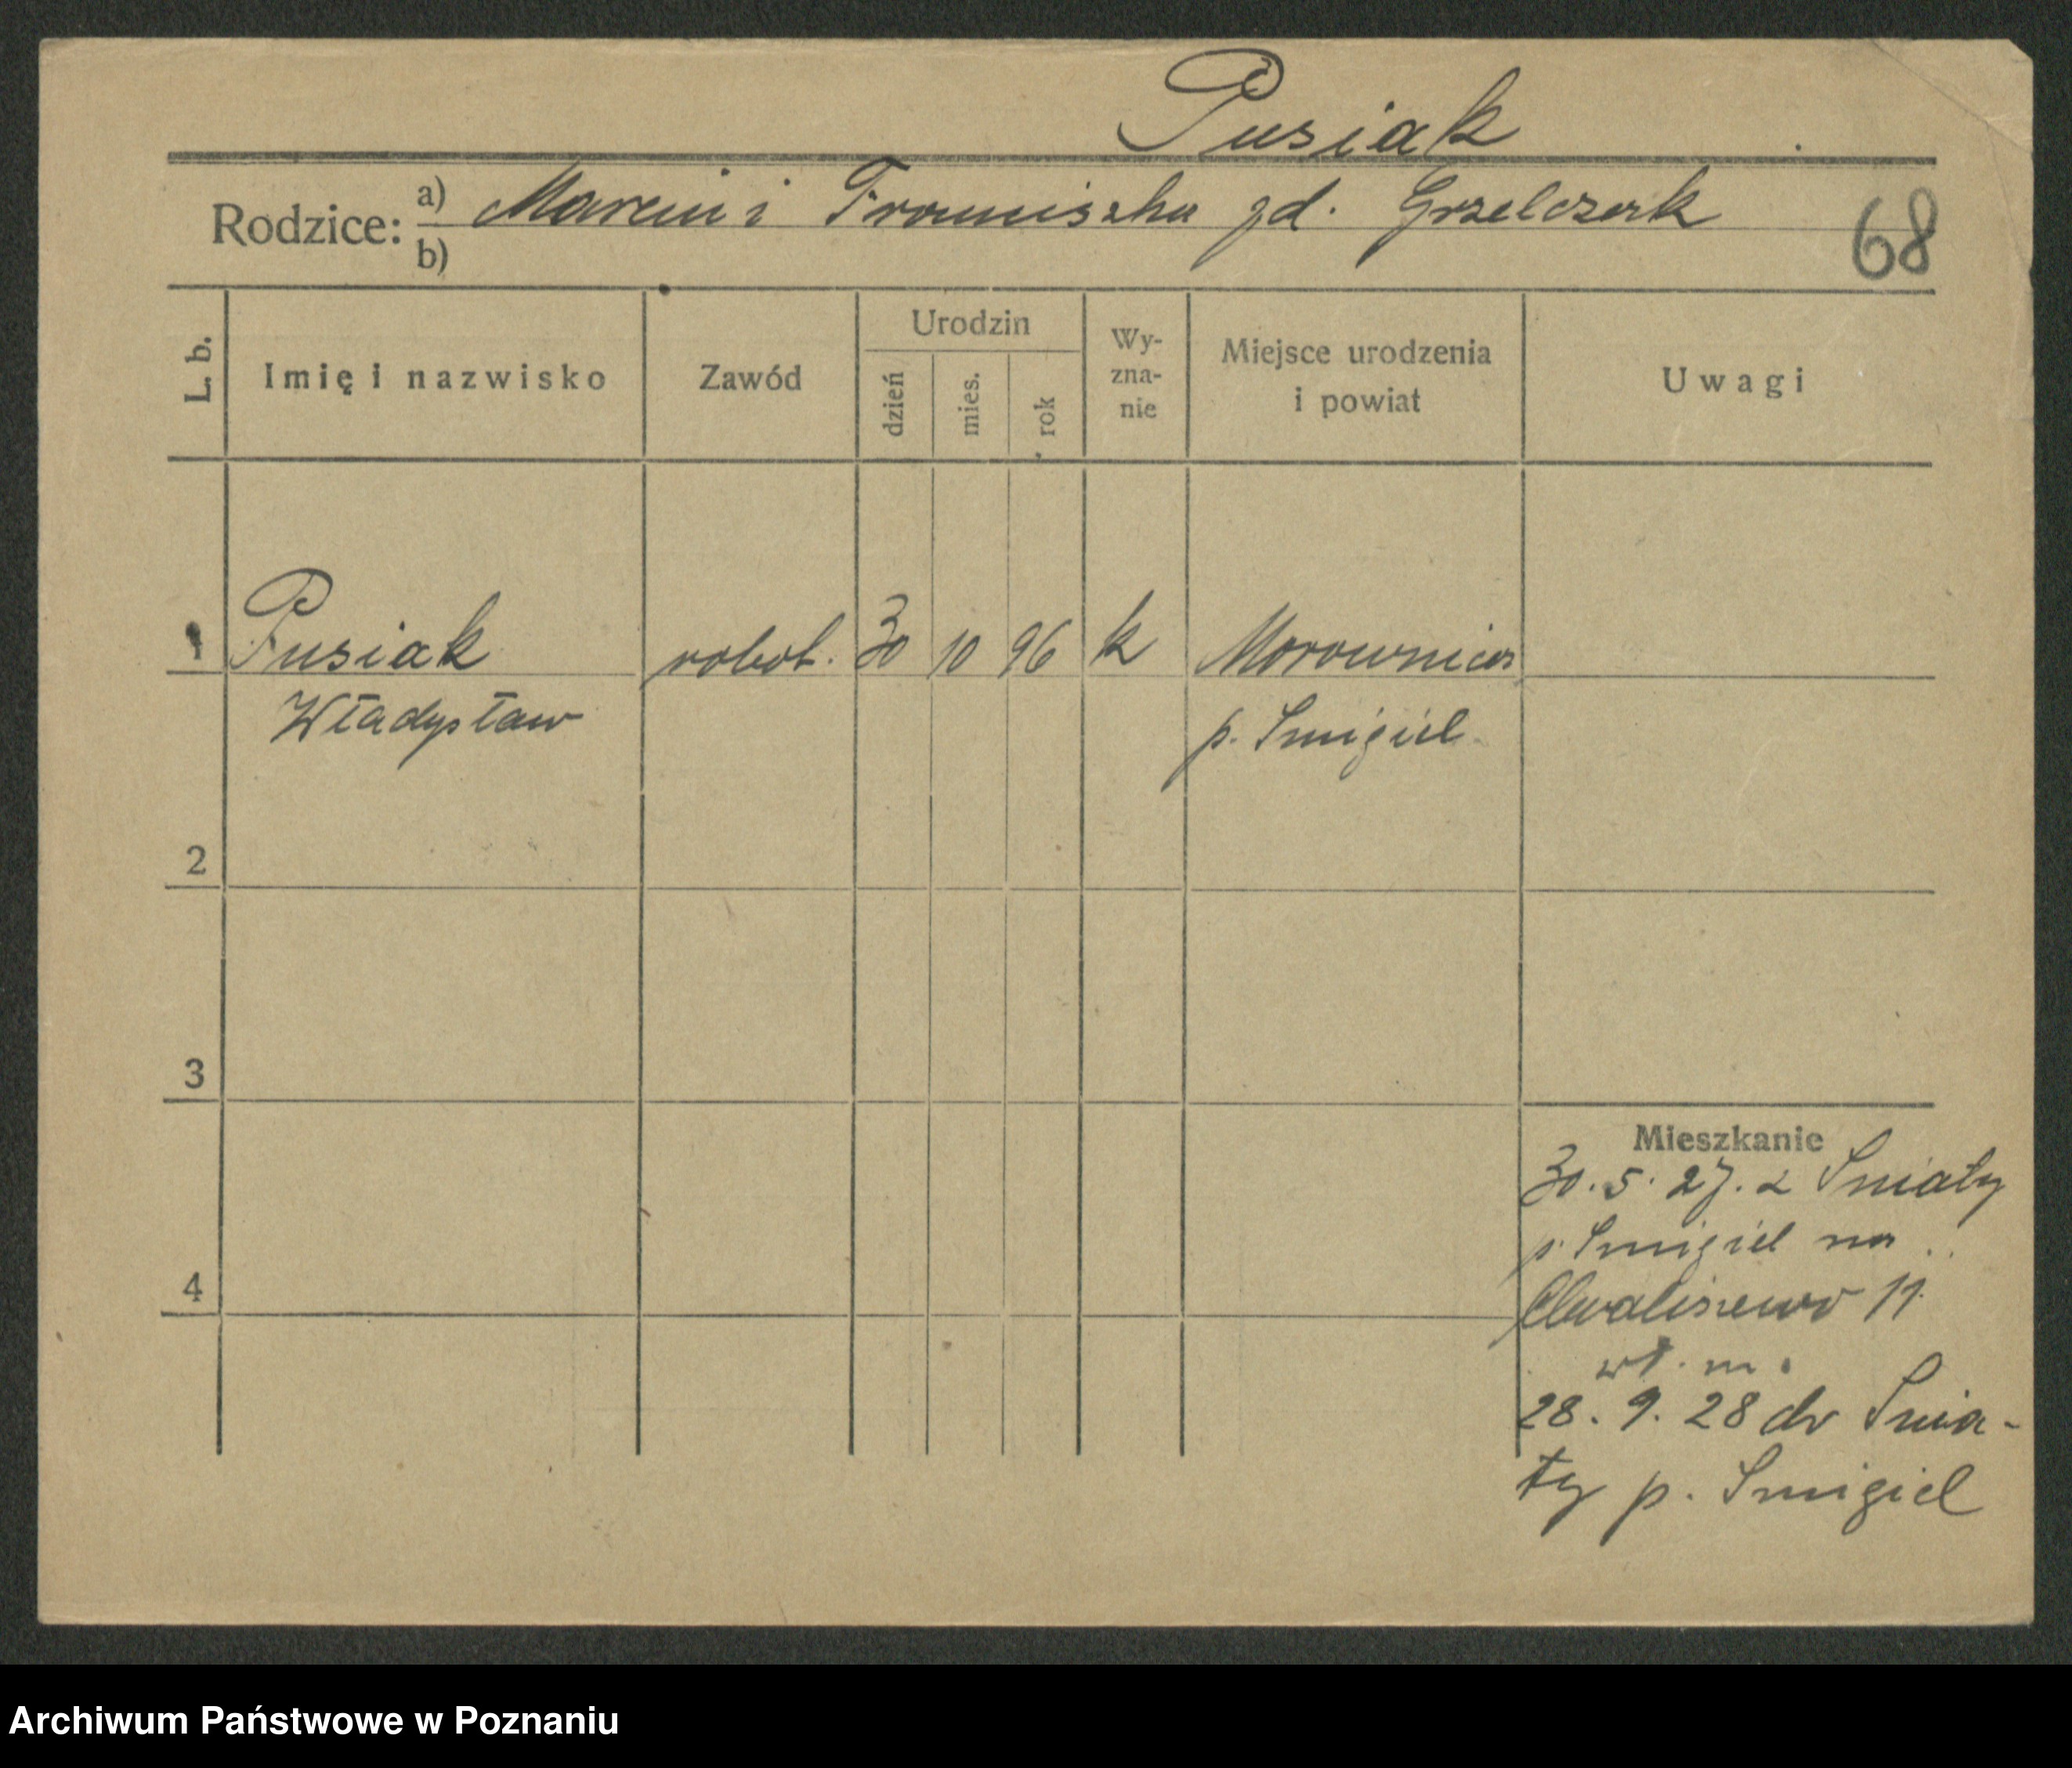 Pusiak
Rodzice: a) Marcin i Franciszka zd. Grzelczak
b)
68
L. b.
Imię i nazwisko
Zawód
Urodzin
dzień
mies.
rok
Wy-
zna-
nie
Miejsce urodzenia
i powiat
Uwagi
1 Pusiak robot. 30 10 96 k Morownica
Władysław p. Smigiel
2
3
Mieszkanie
30.5.27. z Sniaty
p. Smigiel na
4
Chwaliszewo 11.
wł. m.
28. 9. 28 do Snia-
ty p. Smigiel
Archiwum Państwowe w Poznaniu